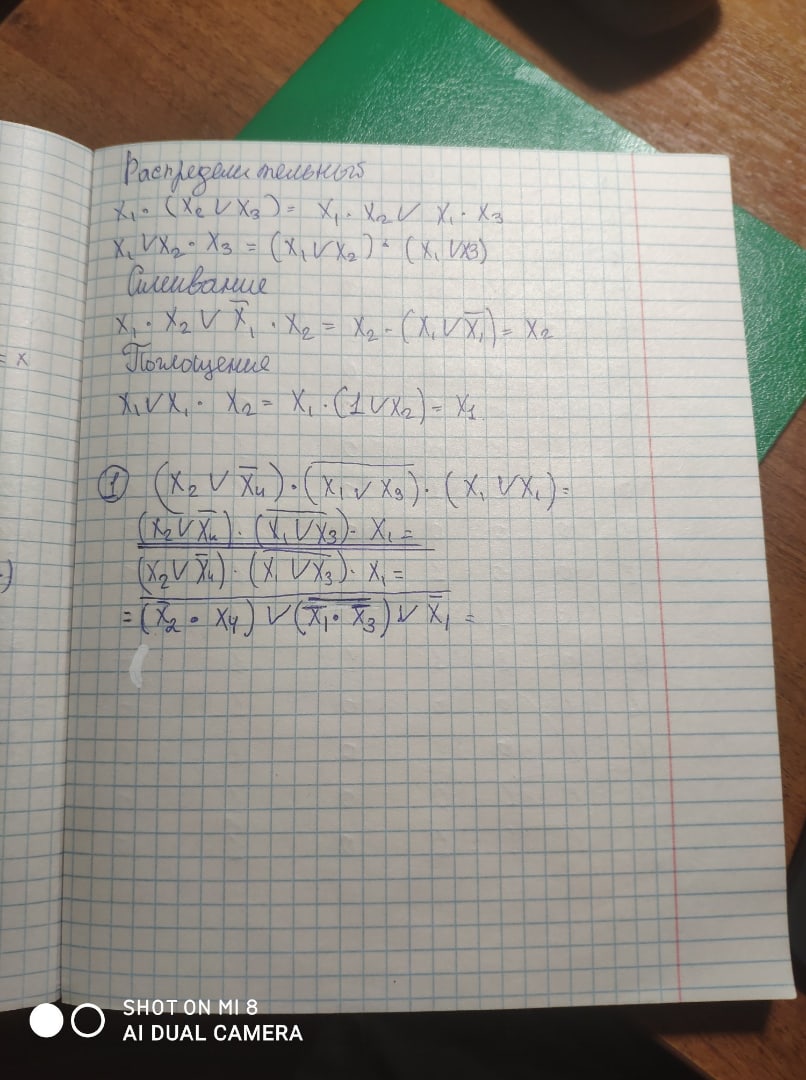 Распределительный
x₁ · (x₂ ∨ x₃) = x₁ · x₂ ∨ x₁ · x₃
x₁ ∨ x₂ · x₃ = (x₁ ∨ x₂) · (x₁ ∨ x3)
Склеивание
x₁ · x₂ ∨ x̅₁ · x₂ = x₂ · (x₁ ∨ x̅₁) = x₂
= x
Поглощение
x₁ ∨ x₁ · x₂ = x₁ · (1 ∨ x₂) = x₁
① (x₂ ∨ x̅₄) · (x̅₁̅ ̅∨̅ ̅x̅₃̅) · (x₁ ∨ x₁) =
(x₂ ∨ x̅₄) · (x̅₁̅ ̅∨̅ ̅x̅₃̅) · x₁ =
(x₂ ∨ x̅₄) · (x̅₁̅ ̅∨̅ ̅x̅₃̅) · x₁ =
= (x̅₂ · x₄) ∨ (x̿₁ · x̿₃) ∨ x̅₁ =
SHOT ON MI 8
AI DUAL CAMERA